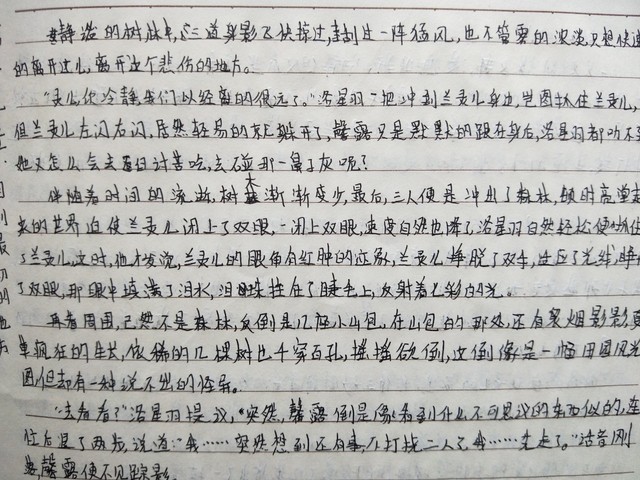 静谧的树林中，这三道身影飞快掠过，刮过一阵猛风，也不管雾的浓淡，只想快速
的离开这儿，离开这个悲伤的地方。
“灵儿，你冷静，我们以经离的很远了。”洛星羽一把冲到兰灵儿身边，岂图抓住兰灵儿，
但兰灵儿左闪右闪，居然轻易的就摆开了，馨露只是默默的跟在身后，洛星羽都叻不
她又怎么会去自讨苦吃，去碰那一鼻子灰呢？
伴随着时间的流逝，树木渐渐变少，最后，三人便是冲出了森林，顿时高亮起
来的世界迫使兰灵儿闭上了双眼，一闭上双眼，速度自然也降了，洛星羽自然轻松便抓住
了兰灵儿，这时，他才发现，兰灵儿的眼角有红肿的迹象，兰灵儿挣脱了双手，适应了光线，睁开
了双眼，那眼中填满了泪水，泪珠挂在了睫毛上，反射着七彩的光。
再看周围，已然不是森林，反倒是几座小山包，在山包的那处，还有袅烟影影，
草疯狂的生长，依稀的几棵树也千穿百孔，摇摇欲倒，这倒像是一幅田园风光
图，但却有一种说不出的怪异。
“去看看？”洛星羽提议，突然，馨露倒是像看到什么不可思议的东西似的，连
往后退了两步，说道：“我……突然想到还有事，不打扰二人了，我……先走了。”话音刚
馨露便不见踪影。